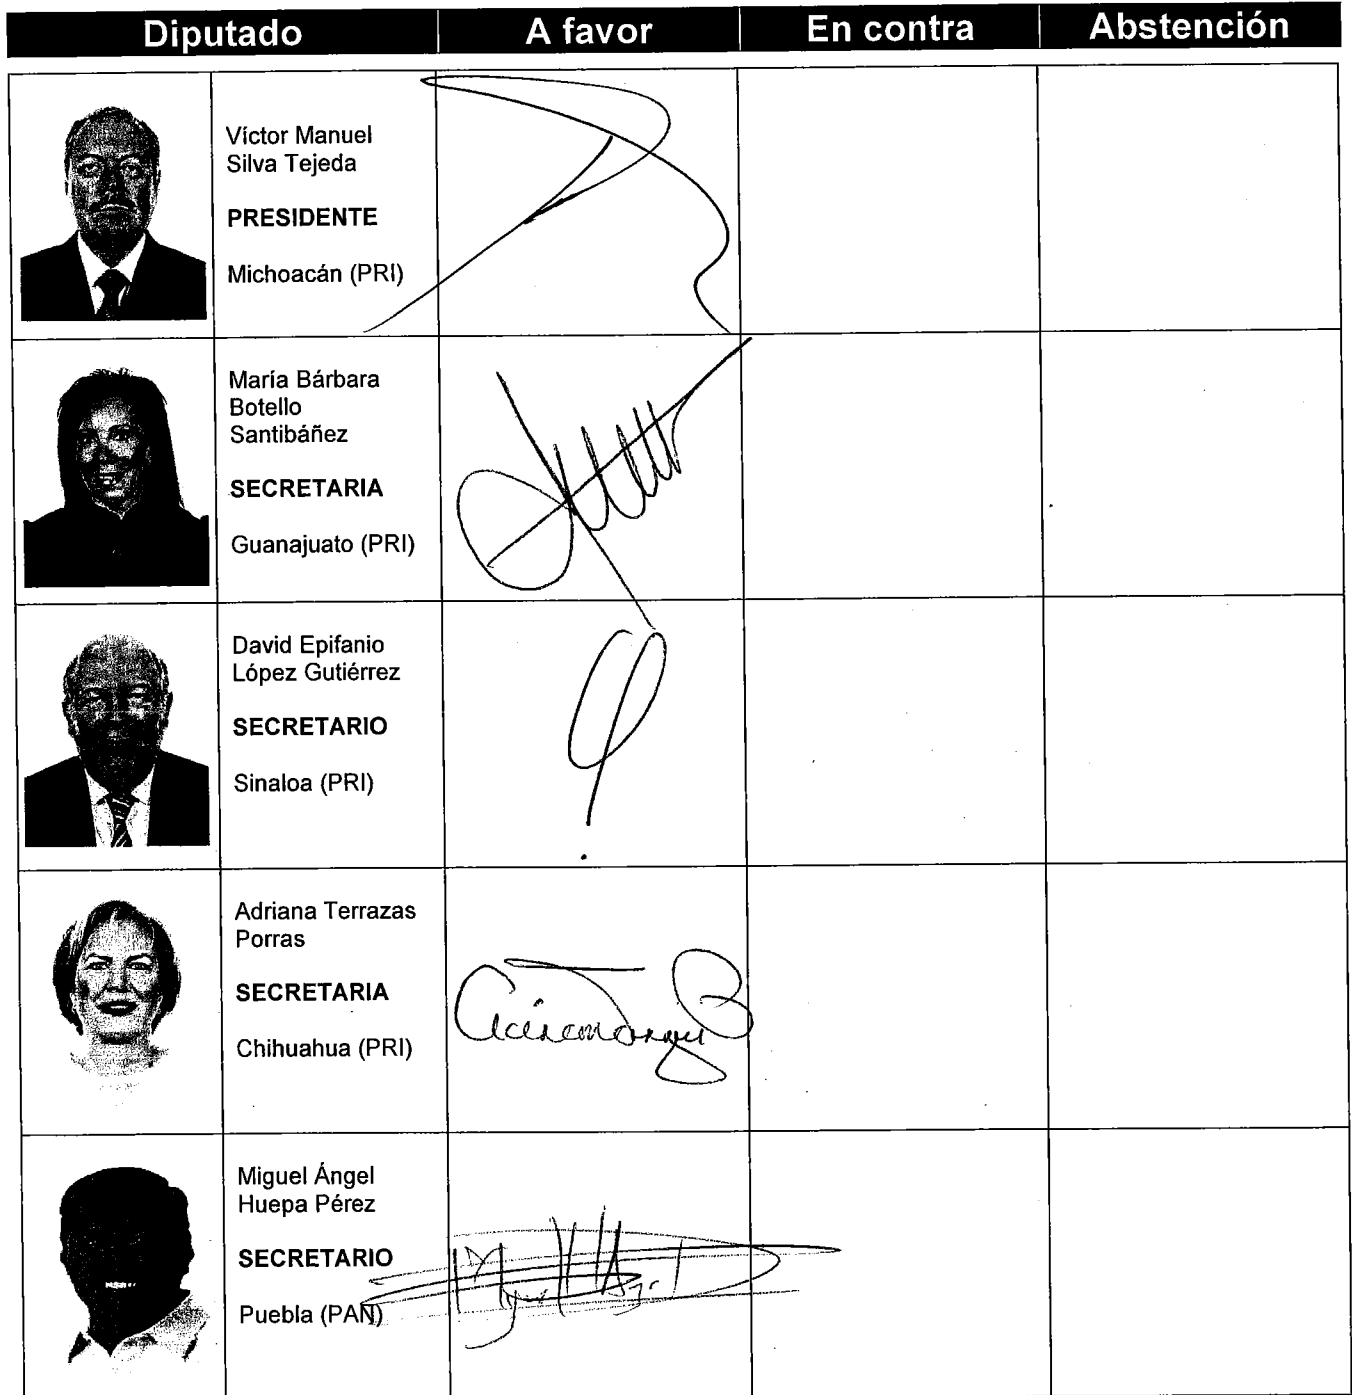 Diputado A favor En contra Abstención
Víctor Manuel
Silva Tejeda
PRESIDENTE
Michoacán (PRI)
María Bárbara
Botello
Santibáñez
SECRETARIA
Guanajuato (PRI)
David Epifanio
López Gutiérrez
SECRETARIO
Sinaloa (PRI)
Adriana Terrazas
Porras
SECRETARIA
Chihuahua (PRI)
Miguel Ángel
Huepa Pérez
SECRETARIO
Puebla (PAN)